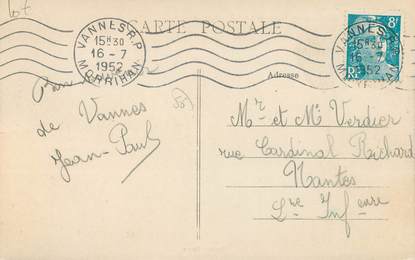 lot
CARTE POSTALE
VANNES R.P.
15H30
16-7
1952
MORBIHAN
8F
VANNES R.P.
15H30
16-7
1952
MORBIHAN
RF
Adresse
de Vannes
Jean-Paul
Mr et Me Verdier
rue Cardinal Richard
Nantes
Lre Infeure